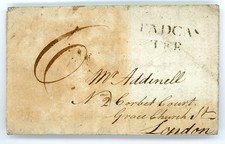 TADCAS
TER
6
Mr Addinell
No 2 Corbet Court
Grace Church St
London